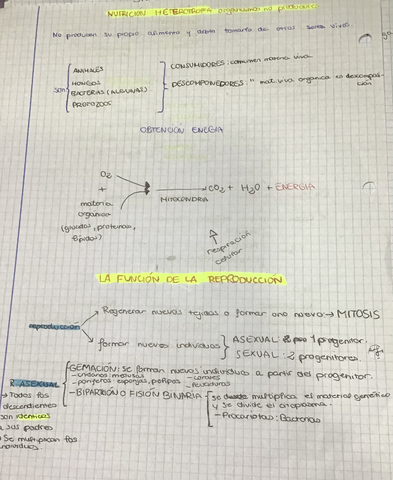 NUTRICIÓN HETERÓTROFA organismos no producen
No producen su propio alimento y deben tomarlo de otros seres vivos
son
ANIMALES
HONGOS
BACTERIAS (ALGUNAS)
PROTOZOOS
CONSUMIDORES: consumen materia viva
DESCOMPONEDORES: " mat. viva organica en descomposi-
ción
OBTENCIÓN ENERGIA
O2
+
materia
organica
(glucidos, proteinas,
lipidos)
MITOCONDRIA
CO2 + H2O + ENERGIA
respiración
celular
LA FUNCIÓN DE LA REPRODUCCIÓN
reproducción
Regenerar nuevos tejidos o formar uno nuevo → MITOSIS
formar nuevos individuos
ASEXUAL 1 progenitor
SEXUAL: 2 progenitores
R. ASEXUAL
→ Todos los
descendientes
son identicos
a sus padres
→ Se multiplican los
individuos
GEMACIÓN: se forman nuevos individuos a partir del progenitor.
- cnidarios: medusas - corales
- poriferos: esponjas, polipos - levaduras
- BIPARTICIÓN O FISIÓN BINARIA
se multiplica el material genético
y se divide el citoplasma.
- Procariotas: Bacterias